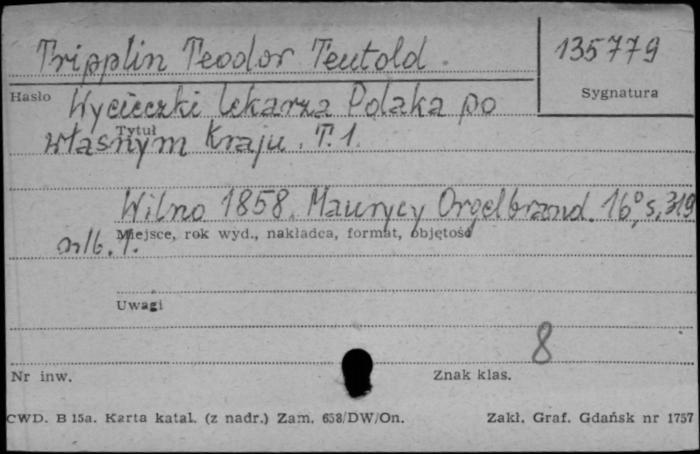 Tripplin Teodor Teutold.
135779
Hasło
Sygnatura
Wycieczki lekarza Polaka po
Tytuł
własnym Kraju. T.1.
Wilno 1858. Maurycy Orgelbrand. 16°, s, 319
Miejsce, rok wyd., nakładca, format, objętość
nlb. 1.
Uwagi
8
Nr inw.
Znak klas.
CWD. B 15a. Karta katal. (z nadr.) Zam. 658/DW/On.
Zakł. Graf. Gdańsk nr 1757